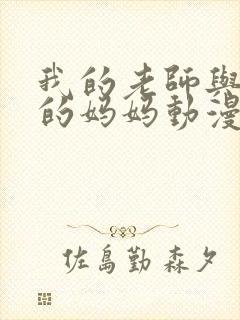 我的老師與
的媽媽動漫
佐島勤 森夕